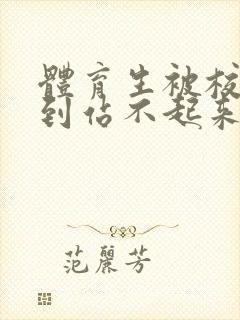 體育生被校
到佔不起來
范麗芳